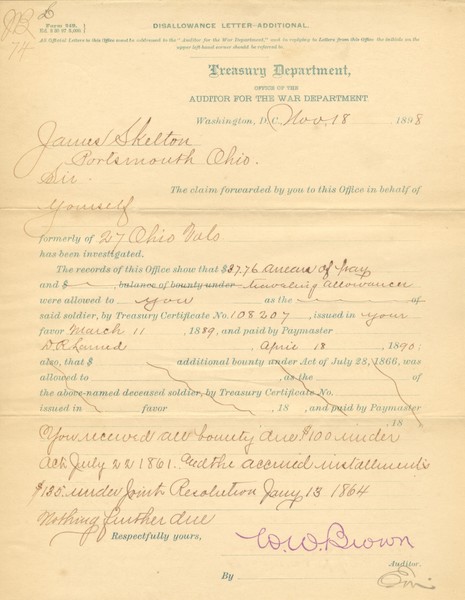 Form 248.
DISALLOWANCE LETTER-ADDITIONAL.
74
All Official Letters to this Office must be addressed to the "Auditor for the War Department," and in replying to Letters from this Office the initials on the
upper left-hand corner should be referred to.
Treasury Department,
OFFICE OF THE
AUDITOR FOR THE WAR DEPARTMENT
Washington, D.C., Nov. 18 1898
James Skelton
Portsmouth Ohio.
Sir:
The claim forwarded by you to this Office in behalf of
Yourself
formerly of 27 Ohio Vols
has been investigated.
The records of this Office show that $37.76 arrears of pay
and $ , balance of bounty under traveling allowances
were allowed to you as the of
said soldier, by Treasury Certificate No. 108207, issued in your
favor March 11, 1889, and paid by Paymaster
April 18, 1890:
also, that $ additional bounty under Act of July 28, 1866, was
allowed to , as the of
the above-named deceased soldier, by Treasury Certificate No.
issued in favor , 18 , and paid by Paymaster
, 18
You received all bounty due $100 under
Act July 22 1861. And the accrued installments
$130. under Joint Resolution Jany 13 1864
Nothing further due
Respectfully yours,
W.W. Brown
Auditor.
By